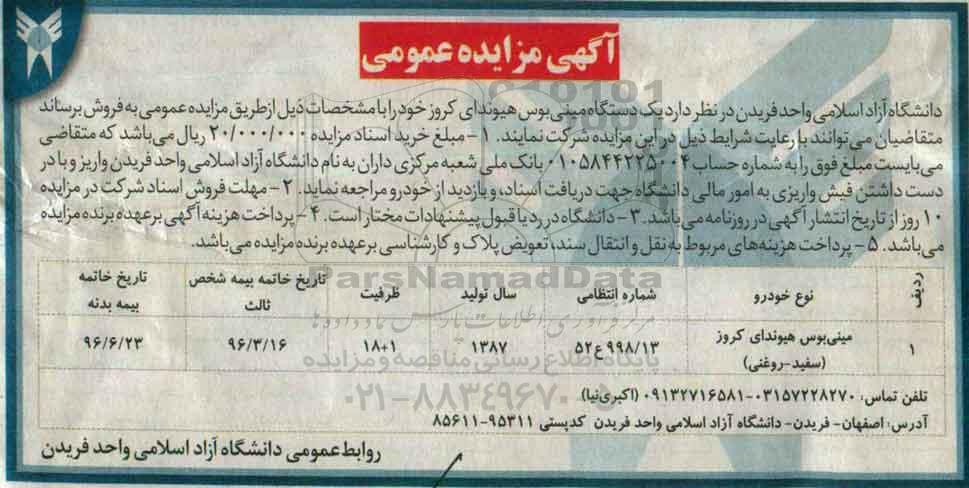 آگهی مزایده عمومی
دانشگاه آزاد اسلامی واحد فریدن در نظر دارد یک دستگاه مینی‌بوس هیوندای کروز خود را با مشخصات ذیل از طریق مزایده عمومی به فروش برساند
متقاضیان می‌توانند با رعایت شرایط ذیل در این مزایده شرکت نمایند. ۱- مبلغ خرید اسناد مزایده ۲۰/۰۰۰/۰۰۰ ریال می‌باشد که متقاضی
می‌بایست مبلغ فوق را به شماره حساب ۰۱۰۵۸۴۴۲۲۵۰۰۴ بانک ملی شعبه مرکزی داران به نام دانشگاه آزاد اسلامی واحد فریدن واریز و با در
دست داشتن فیش واریزی به امور مالی دانشگاه جهت دریافت اسناد، و بازدید از خودرو مراجعه نماید. ۲- مهلت فروش اسناد شرکت در مزایده
۱۰ روز از تاریخ انتشار آگهی در روزنامه می‌باشد. ۳- دانشگاه در رد یا قبول پیشنهادات مختار است. ۴- پرداخت هزینه آگهی بر عهده برنده مزایده
می‌باشد. ۵- پرداخت هزینه‌های مربوط به نقل و انتقال سند، تعویض پلاک و کارشناسی بر عهده برنده مزایده می‌باشد.
ردیف نوع خودرو شماره انتظامی سال تولید ظرفیت تاریخ خاتمه بیمه شخص ثالث تاریخ خاتمه بیمه بدنه
۱ مینی‌بوس هیوندای کروز (سفید-روغنی) ۹۹۸/۱۳ع۵۲ ۱۳۸۷ ۱۸+۱ ۹۶/۳/۱۶ ۹۶/۶/۲۳
تلفن تماس: ۰۳۱۵۷۲۲۸۲۷۰-۰۹۱۳۲۷۱۶۵۸۱ (اکبری‌نیا)
آدرس: اصفهان- فریدن- دانشگاه آزاد اسلامی واحد فریدن کدپستی ۹۵۳۱۱-۸۵۶۱۱
روابط عمومی دانشگاه آزاد اسلامی واحد فریدن
ParsNamadData
مرکز فرآوری اطلاعات پارس نماد داده ها
پایگاه اطلاع رسانی مناقصه و مزایده
۰۲۱-۸۸۳۴۹۶۷۰-۵